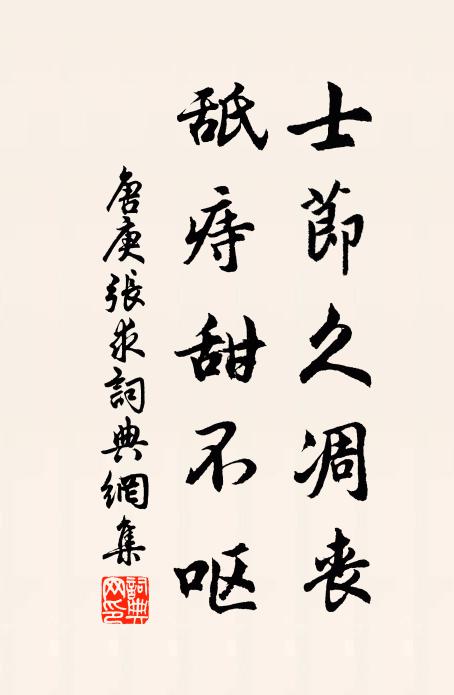 士節久凋喪
舐痔甜不呕
唐庚張求詞典網集
詞典網印